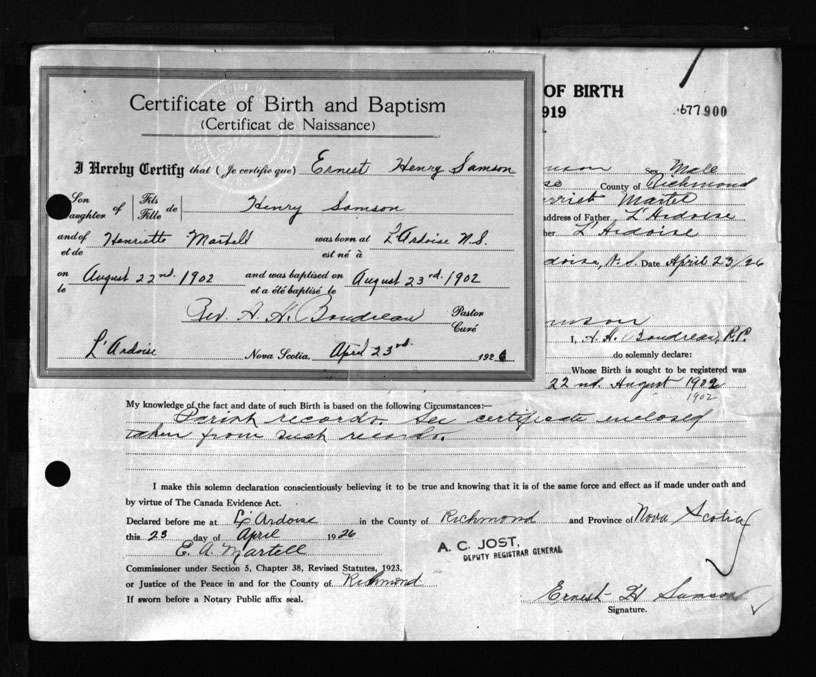 Certificate of Birth and Baptism
(Certificat de Naissance)
I Hereby Certify that (Je certifie que) Ernest Henry Samson
Son Daughter of Fils Fille de Henry Samson
and of et de Henriette Martell was born at est né à L'Ardoise N.S.
on le August 22nd. 1902 and was baptised on et a été baptisé le August 23rd. 1902
Rev. A. H. Boudreau Pastor Curé
L'Ardoise Nova Scotia, April 23rd 1926
OF BIRTH
1919
677900
Male
County of Richmond
Martel
address of Father L'Ardoise
L'Ardoise
N.S. Date April 23/26
I, A. H. Boudreau, P.P.
do solemnly declare:
Whose Birth is sought to be registered was
22nd August 1902
1902
My knowledge of the fact and date of such Birth is based on the following Circumstances:—
Parish records. See certificate enclosed
taken from such records.
I make this solemn declaration conscientiously believing it to be true and knowing that it is of the same force and effect as if made under oath and
by virtue of The Canada Evidence Act.
Declared before me at L'Ardoise in the County of Richmond and Province of Nova Scotia
this 23 day of April 1926
E. A. Martell
A. C. JOST,
DEPUTY REGISTRAR GENERAL
Commissioner under Section 5, Chapter 38, Revised Statutes, 1923.
or Justice of the Peace in and for the County of Richmond
If sworn before a Notary Public affix seal.
Ernest H Samson
Signature.